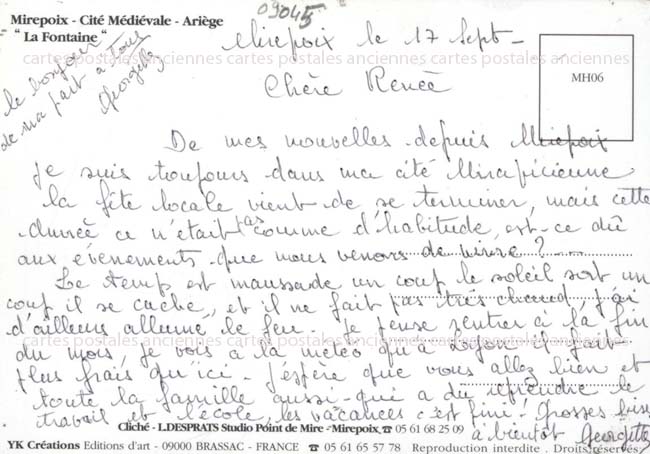 09045
Mirepoix - Cité Médiévale - Ariège
" La Fontaine "
MH06
le bonjour
de ma part à tous
Georgette
Mirepoix le 17 Sept -
Chère Renée
De mes nouvelles depuis Mirepoix
Je suis toujours dans ma cité Mirapicienne
la fête locale vient de se terminer, mais cette
année ce n'était pas comme d'habitude, est-ce dû
aux évènements que nous venons de vivre ?
Le temps est maussade un coup le soleil sort un
coup il se cache, et il ne fait pas très chaud, j'ai
d'ailleurs allumé le feu. Je pense rentrer à la fin
du mois, je vois à la météo qu'à il fait
plus frais qu'ici. J'éspère que vous allez bien et
toute la famille aussi qui a dû reprendre le
travail et l'école, les vacances c'est fini. Grosses bises
à bientôt Georgette
cartes postales anciennes cartes postales anciennes cartes postales anciennes
cartes postales anciennes cartes postales anciennes cartes postales anciennes
Cliché - L.DESPRATS Studio Point de Mire -Mirepoix ☎ 05 61 68 25 09
YK Créations Editions d'art - 09000 BRASSAC - FRANCE ☎ 05 61 65 57 78 Reproduction interdite . Droits réservés